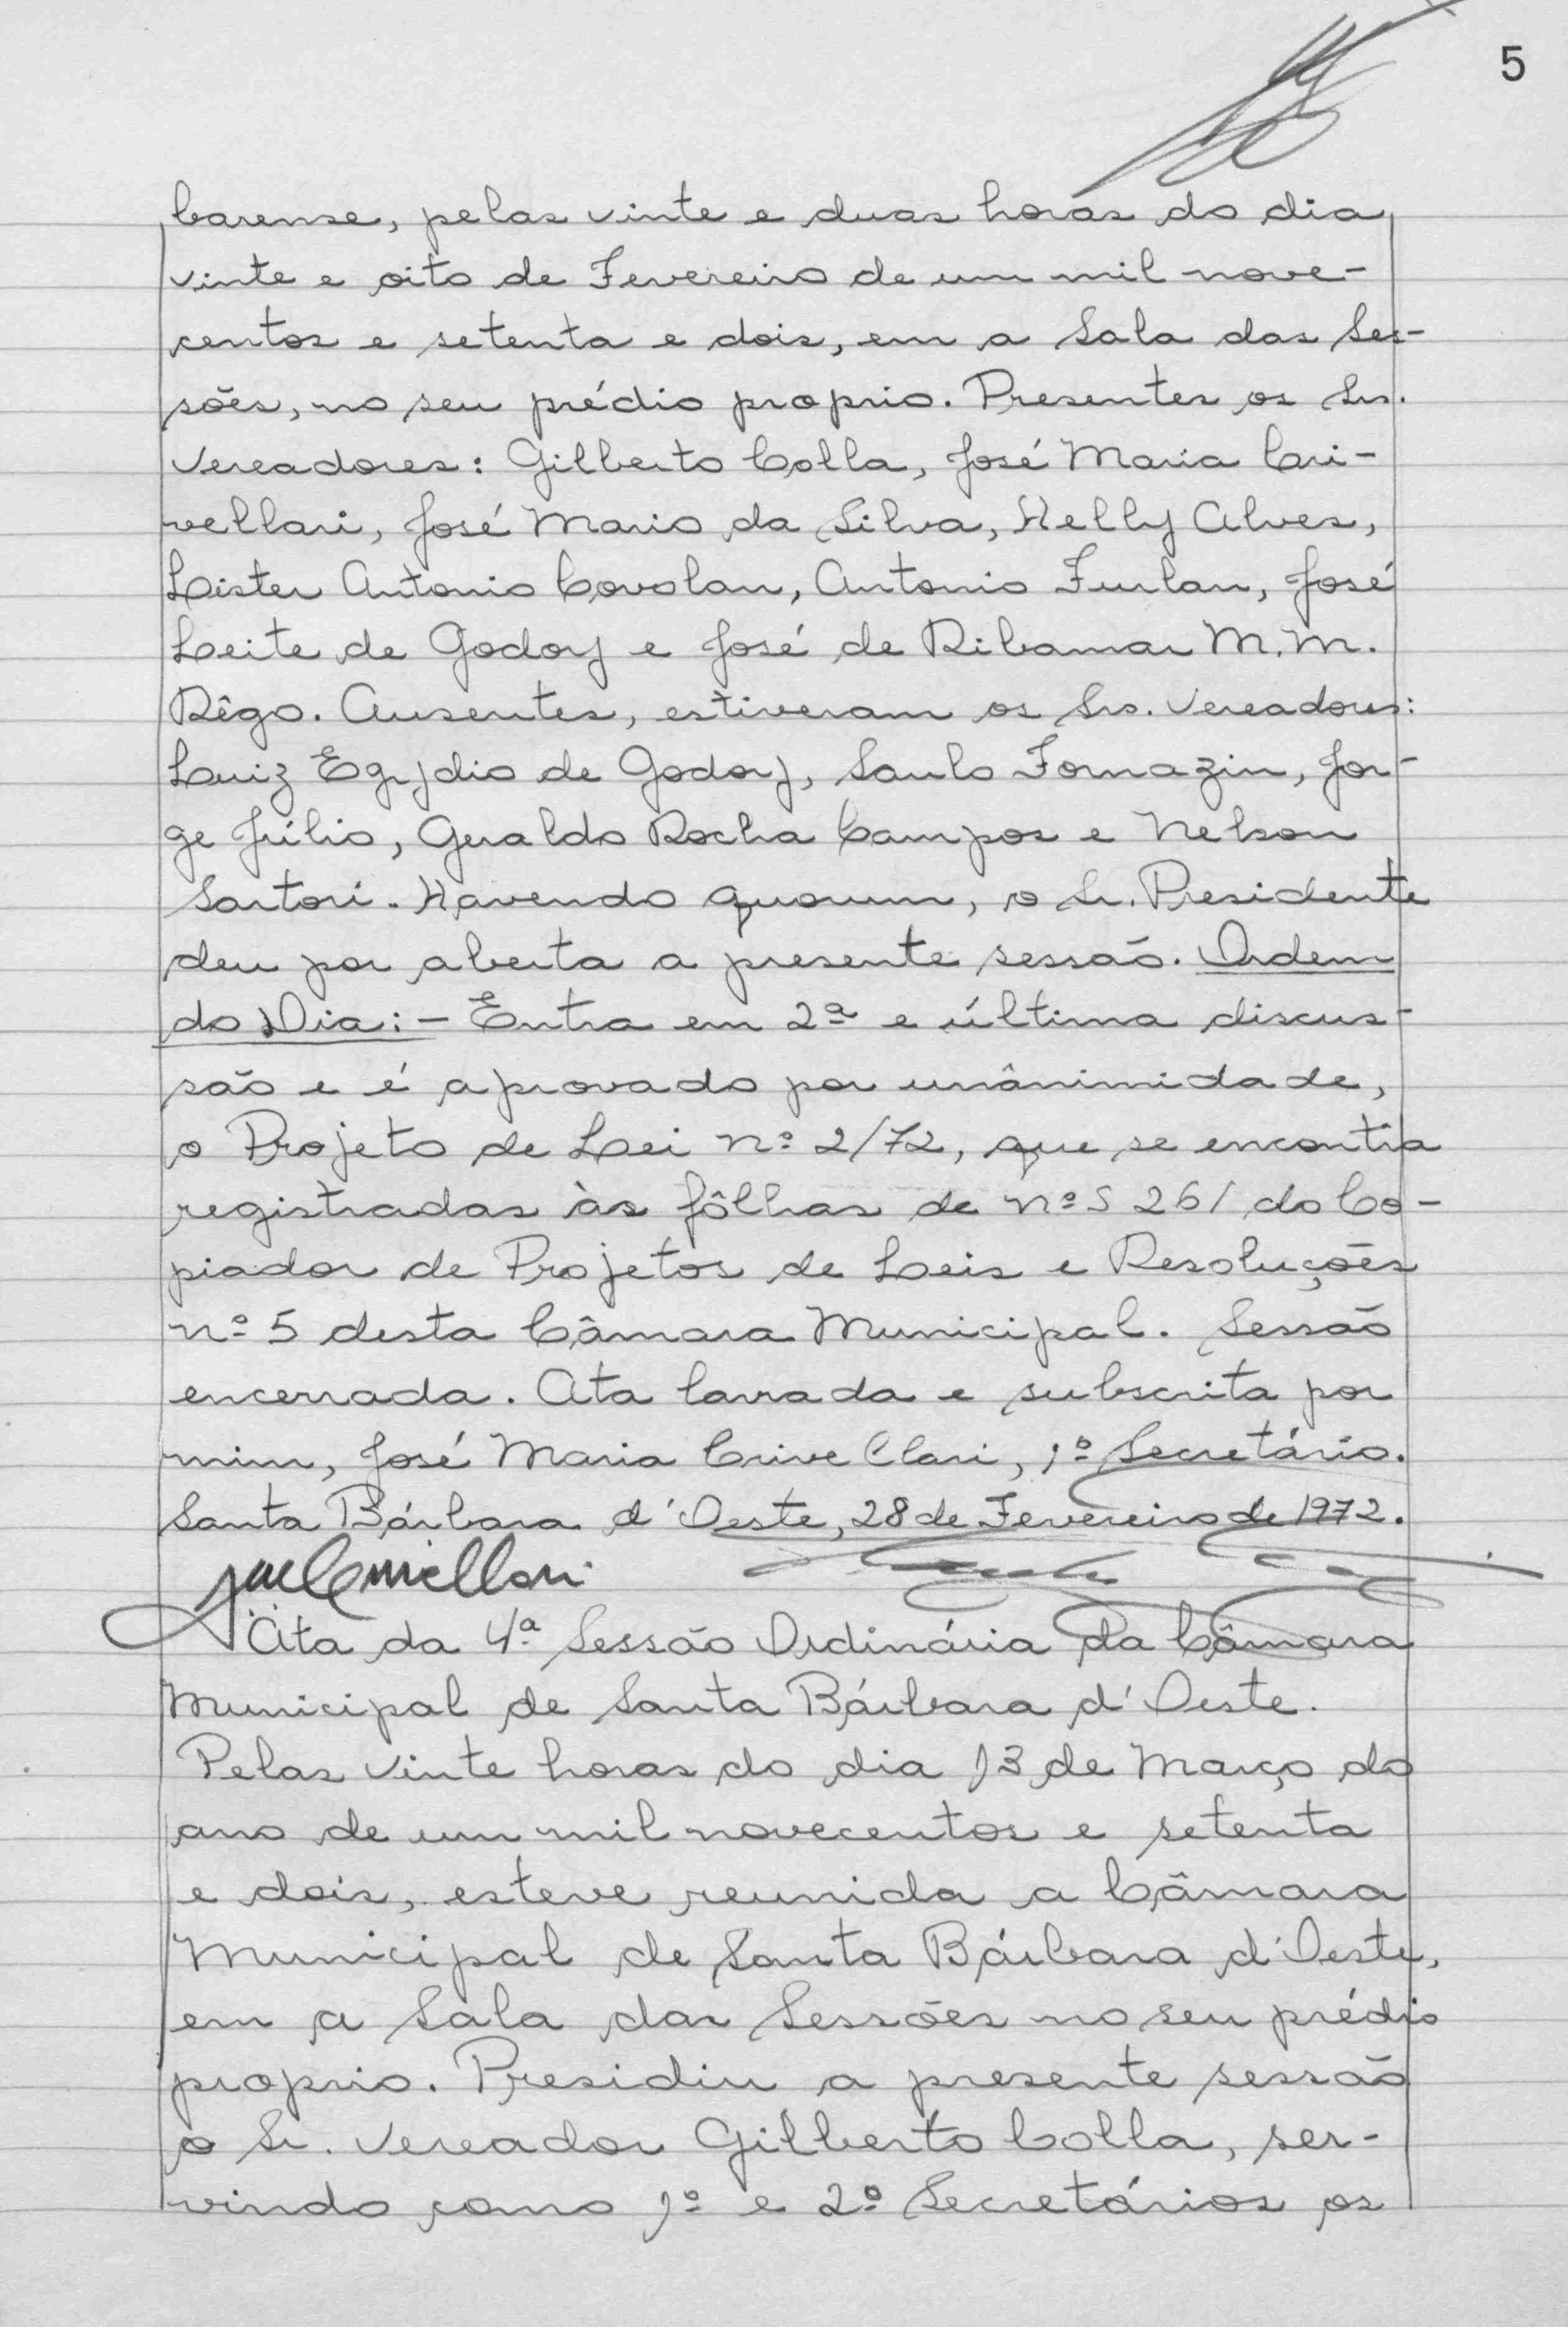 5
barense, pelas vinte e duas horas do dia
vinte e oito de Fevereiro de um mil nove-
centos e setenta e dois, em a Sala das Ses-
sões, no seu prédio proprio. Presentes os Srs.
Vereadores: Gilberto Colla, José Maria Cri-
vellari, José Mario da Silva, Helly Alves,
Lister Antonio Covolan, Antonio Furlan, José
Leite de Godoy e José de Ribamar M. M.
Rêgo. Ausentes, estiveram os Srs. Vereadores:
Luiz Egydio de Godoy, Saulo Fornazin, Jor-
ge Júlio, Geraldo Rocha Campos e Nelson
Sartori. Havendo quorum, o Sr. Presidente
deu por aberta a presente sessão. Ordem
do Dia: - Entra em 2ª e última discus-
são e é aprovado por unânimidade,
o Projeto de Lei nº 2/72, que se encontra
registradas às fôlhas de nºs 261 do Co-
piador de Projetos de Leis e Resoluções
nº 5 desta Câmara Municipal. Sessão
encerrada. Ata lavrada e subscrita por
mim, José Maria Crivellari, 1º Secretário.
Santa Bárbara d'Oeste, 28 de Fevereiro de 1972.
Ata da 4ª Sessão Ordinária da Câmara
Municipal de Santa Bárbara d'Oeste.
Pelas vinte horas do dia 13 de Março do
ano de um mil novecentos e setenta
e dois, esteve reunida a Câmara
Municipal de Santa Bárbara d'Oeste,
em a Sala das Sessões no seu prédio
proprio. Presidiu a presente sessão
o Sr. Vereador Gilberto Colla, ser-
vindo como 1º e 2º Secretários os